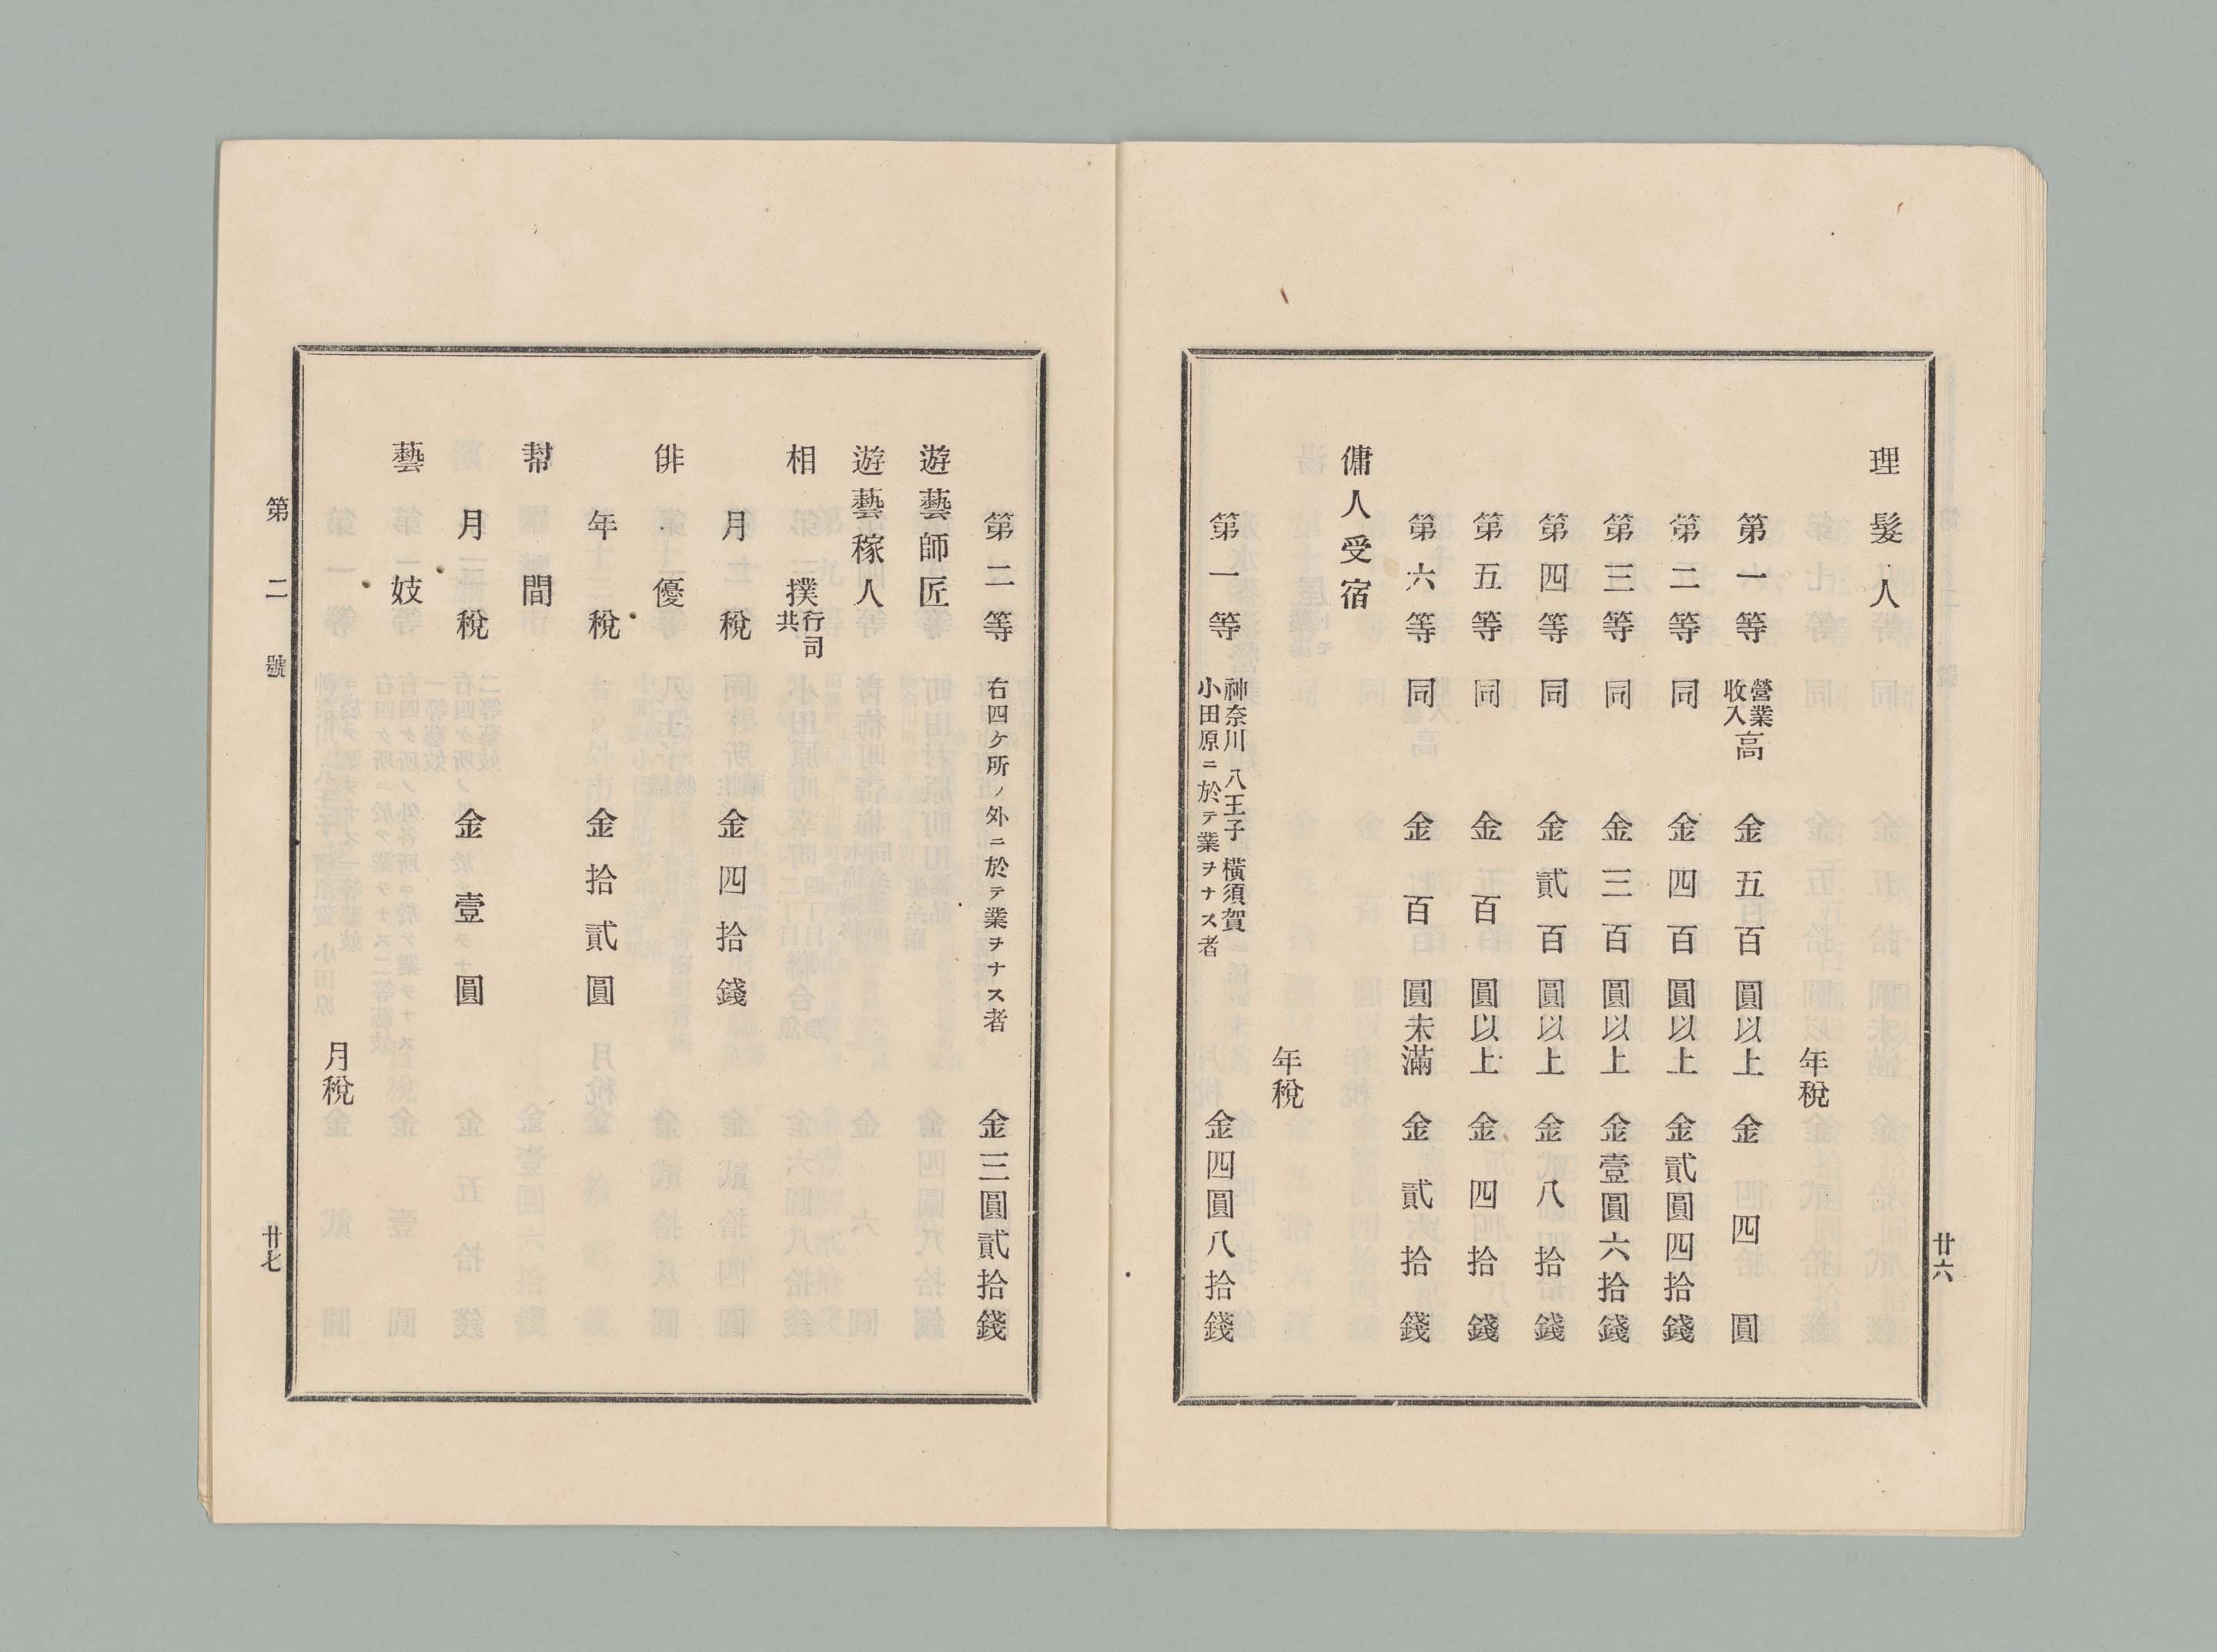 理髮人
年稅
第一等 營業收入高 金五百圓以上 金四圓
第二等 同 金四百圓以上 金貳圓四拾錢
第三等 同 金三百圓以上 金壹圓六拾錢
第四等 同 金貳百圓以上 金八拾錢
第五等 同 金百圓以上 金四拾錢
第六等 同 金百圓未滿 金貳拾錢
傭人受宿
年稅
第一等 神奈川 八王子 橫須賀
小田原ニ於テ業ヲナス者 金四圓八拾錢
廿六
第二等 右四ケ所ノ外ニ於テ業ヲナス者 金三圓貳拾錢
遊藝師匠
遊藝稼人
相撲行司共
月稅 金四拾錢
俳優
年稅 金拾貳圓
幇間
月稅 金壹圓
藝妓
月稅
第二號 廿七